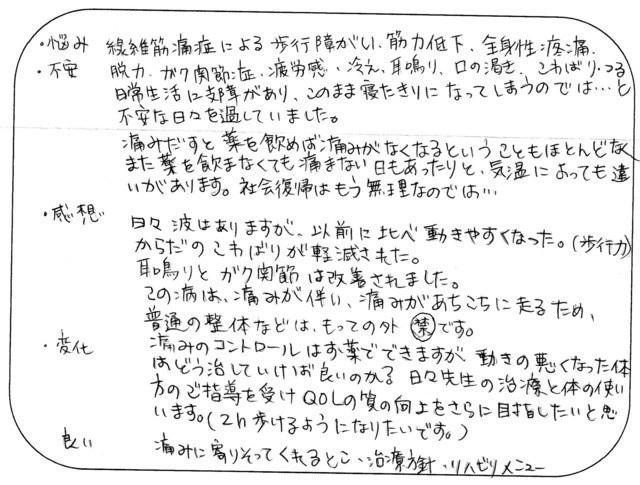 ・悩み 線維筋痛症による歩行障がい、筋力低下、全身性疼痛、
・不安 脱力、ガク関節症、疲労感、冷え、耳鳴り、口の渇き、こわばり、つる
日常生活に支障があり、このまま寝たきりになってしまうのでは…と
不安な日々を過していました。
痛みだすと薬を飲めば痛みがなくなるということもほとんどなく
また薬を飲まなくても痛まない日もあったりと、気温によっても違
いがあります。社会復帰はもう無理なのでは…
・感想 日々波はありますが、以前に比べ動きやすくなった。(歩行力)
からだのこわばりが軽減された。
耳鳴りとガク関節は改善されました。
この病は、痛みが伴い、痛みがあちこちに走るため、
普通の整体などは、もっての外 禁です。
・変化 痛みのコントロールはお薬でできますが動きの悪くなった体
はどう治していけば良いのかを日々先生の治療と体の使い
方のご指導を受けQOLの質の向上をさらに目指したいと思
います。(2h歩けるようになりたいです。)
良い 痛みに寄りそってくれるとこ、治療方針、リハビリメニュー